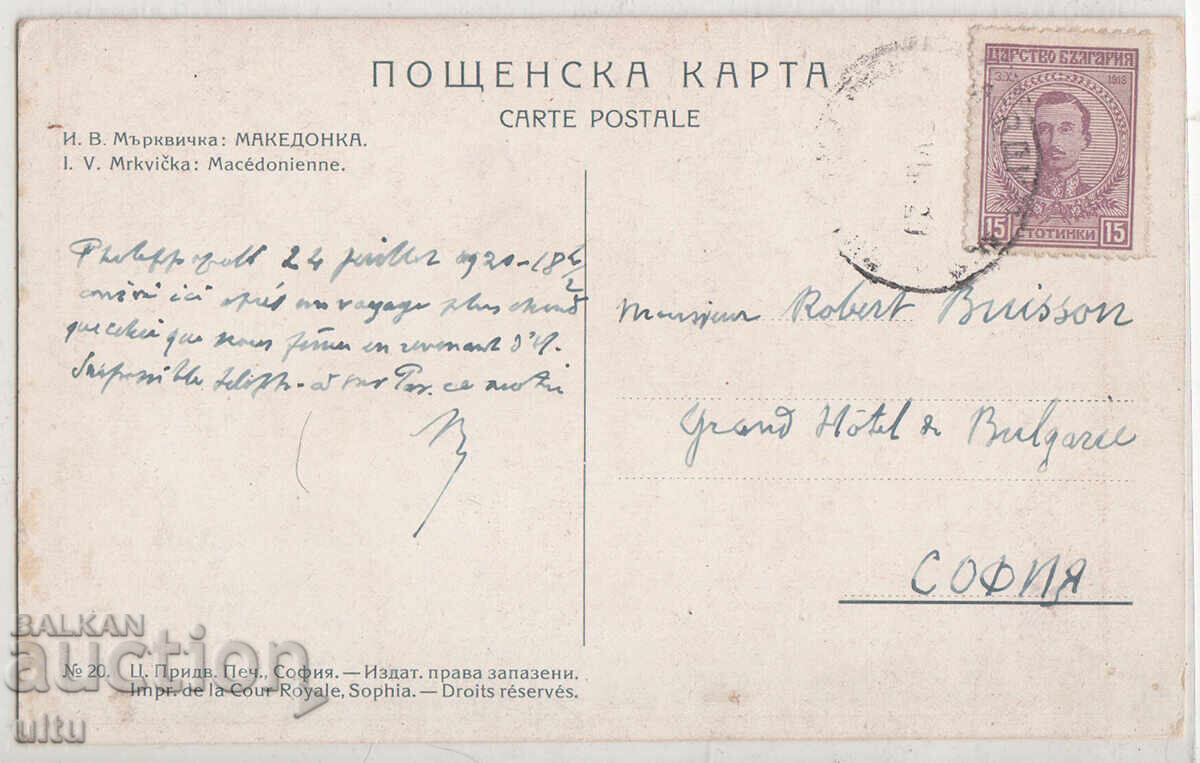 ПОЩЕНСКА КАРТА
CARTE POSTALE
И. В. Мърквичка: МАКЕДОНКА.
I. V. Mrkvička: Macédonienne.
24 juillet
ici après un voyage plus chaud
que celui que nous fîmes en revenant d'
ce
ЦАРСТВО БЪЛГАРИЯ
1918
15 СТОТИНКИ 15
Monsieur Robert Buisson
Grand Hôtel de Bulgarie
СОФИЯ
№ 20. Ц. Придв. Печ., София. — Издат. права запазени.
Impr. de la Cour Royale, Sophia. — Droits réservés.
BALKAN
auction
ultu